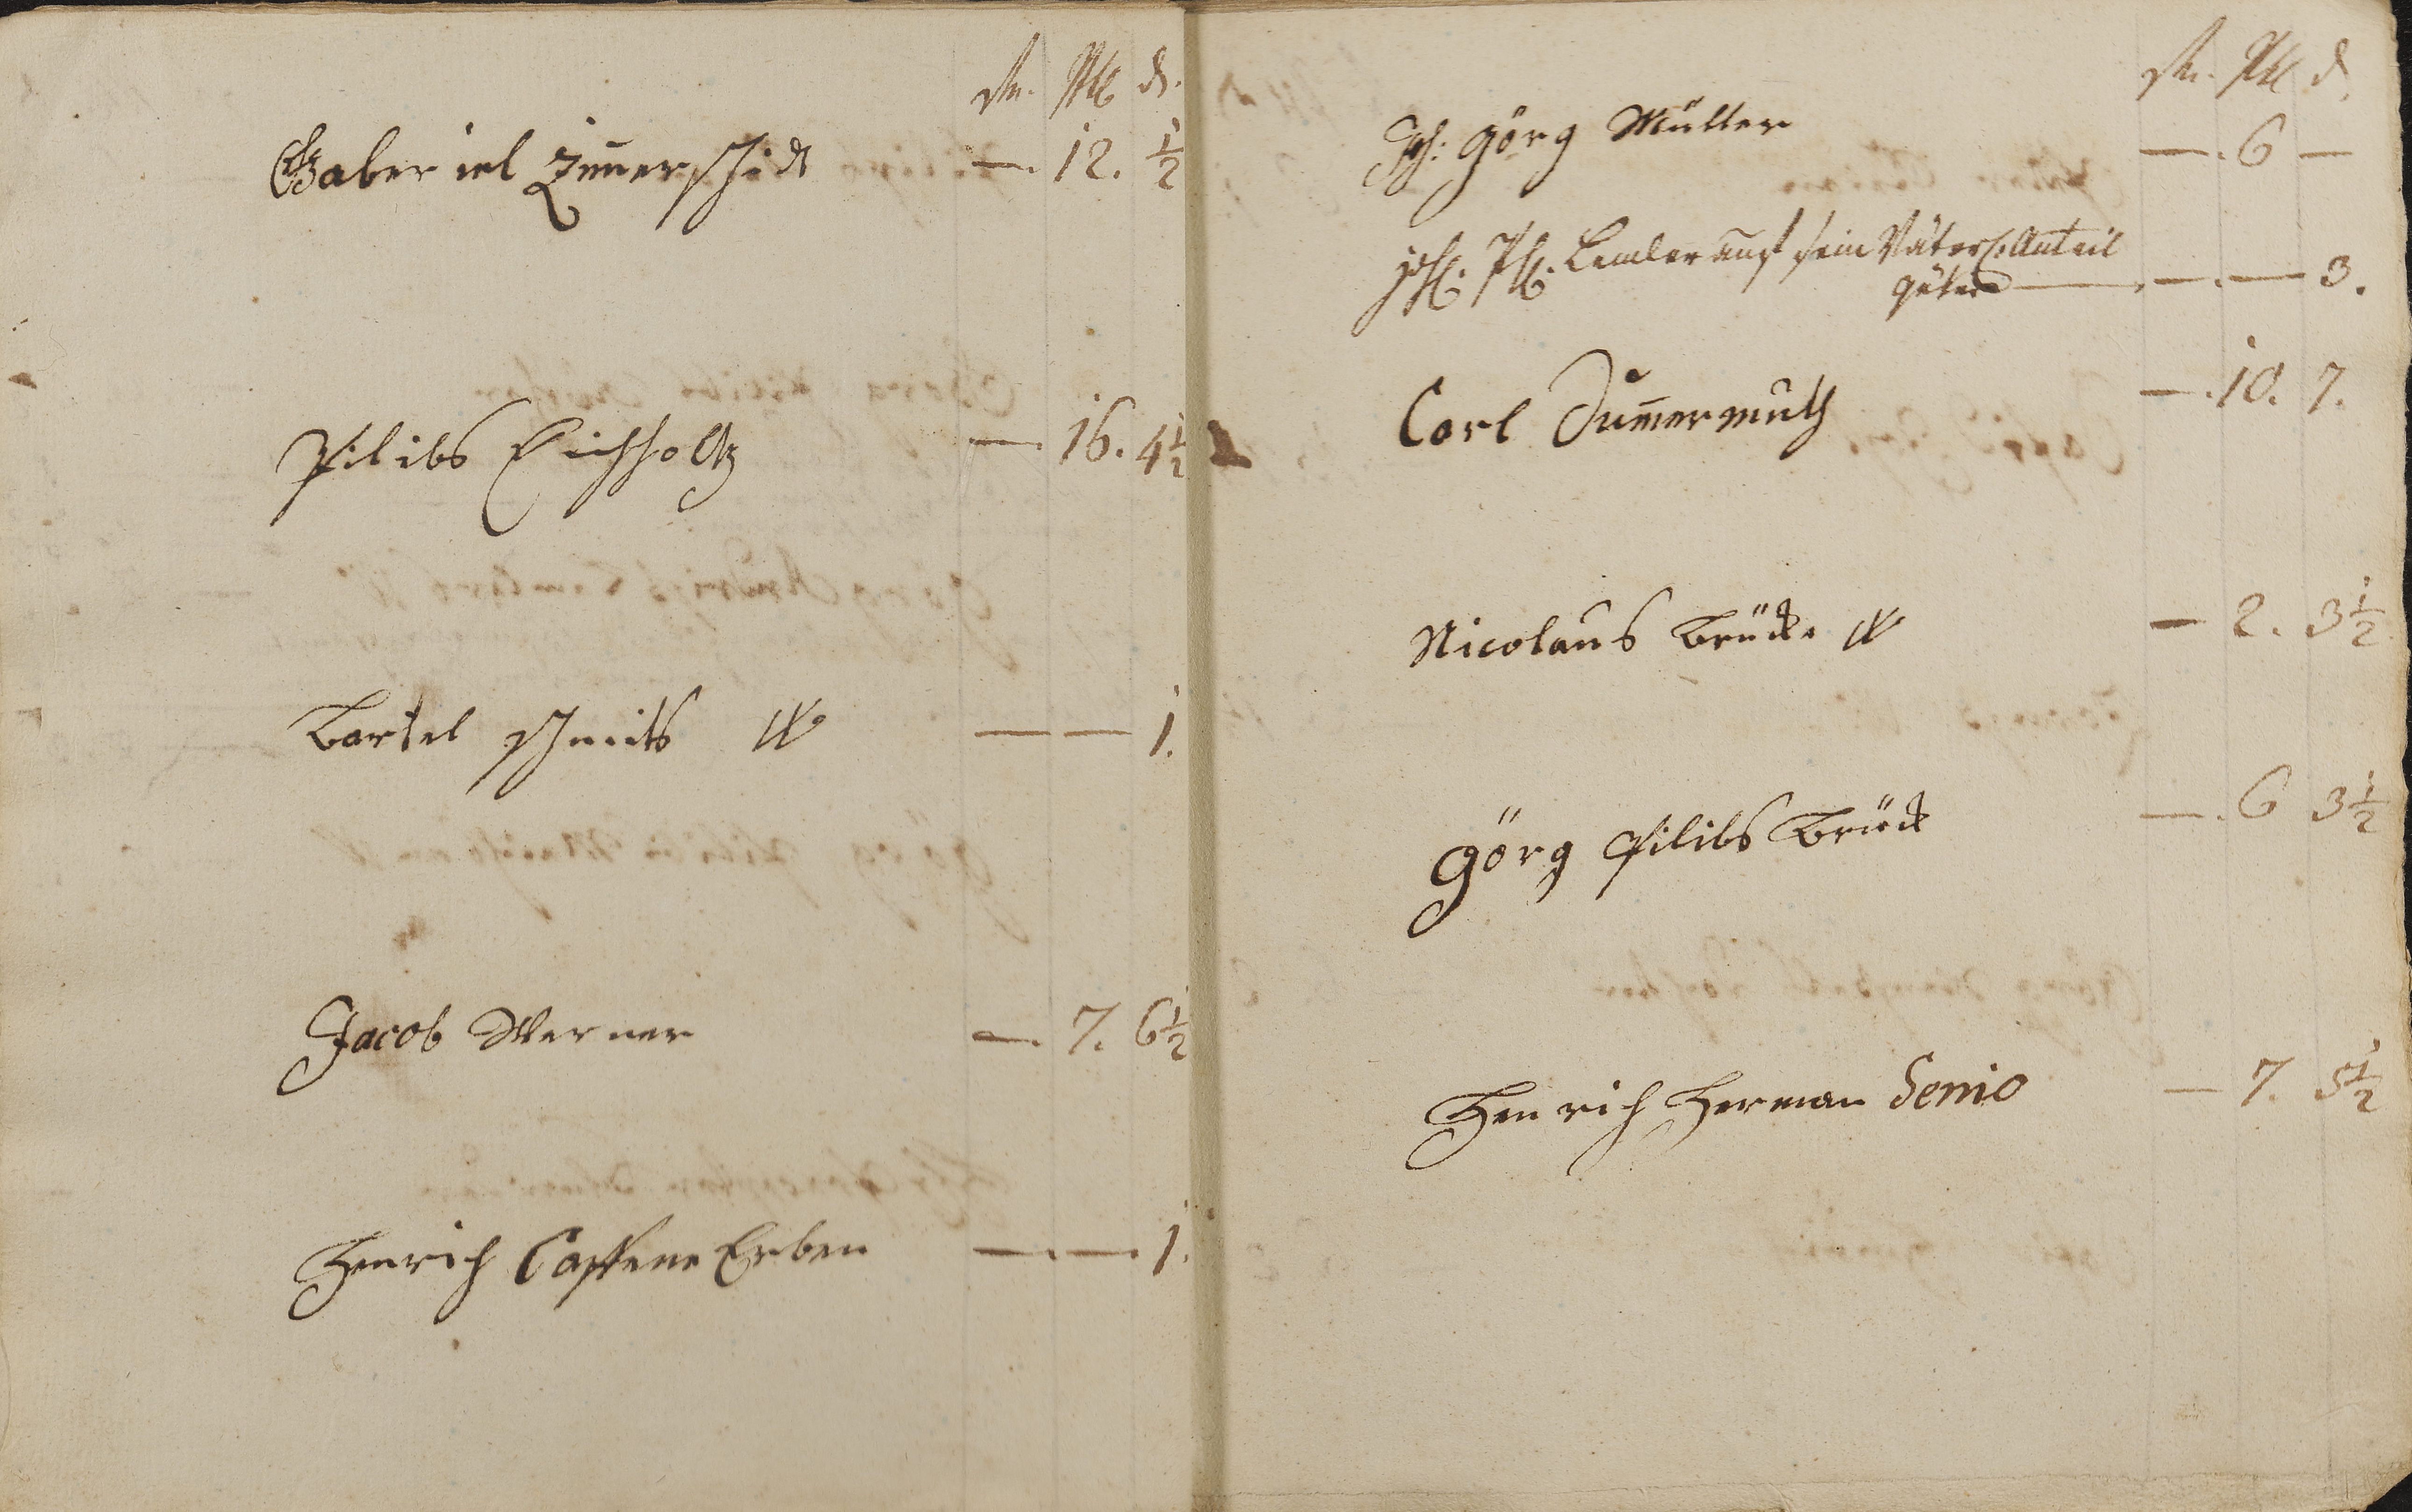 Gaberiel Zim̅erschidt — 12. ½
Pilibs Eichholtz — 16. 4½
Bartel schmits W — — 1.
Jacob Werner — 7. 6½
Henrich Erben — — 1.
Joh: Görg Müller — 6 —
Joh: Ph: Lemler auch sein Väterl: Anteil
güter — — 3.
Carl Dum̅ermuth — 10. 7.
Nicolaus Brücke W — 2. 3½
Görg Pilibs Brück — 6 3½
Henrich Herman Senio — 7. 5½